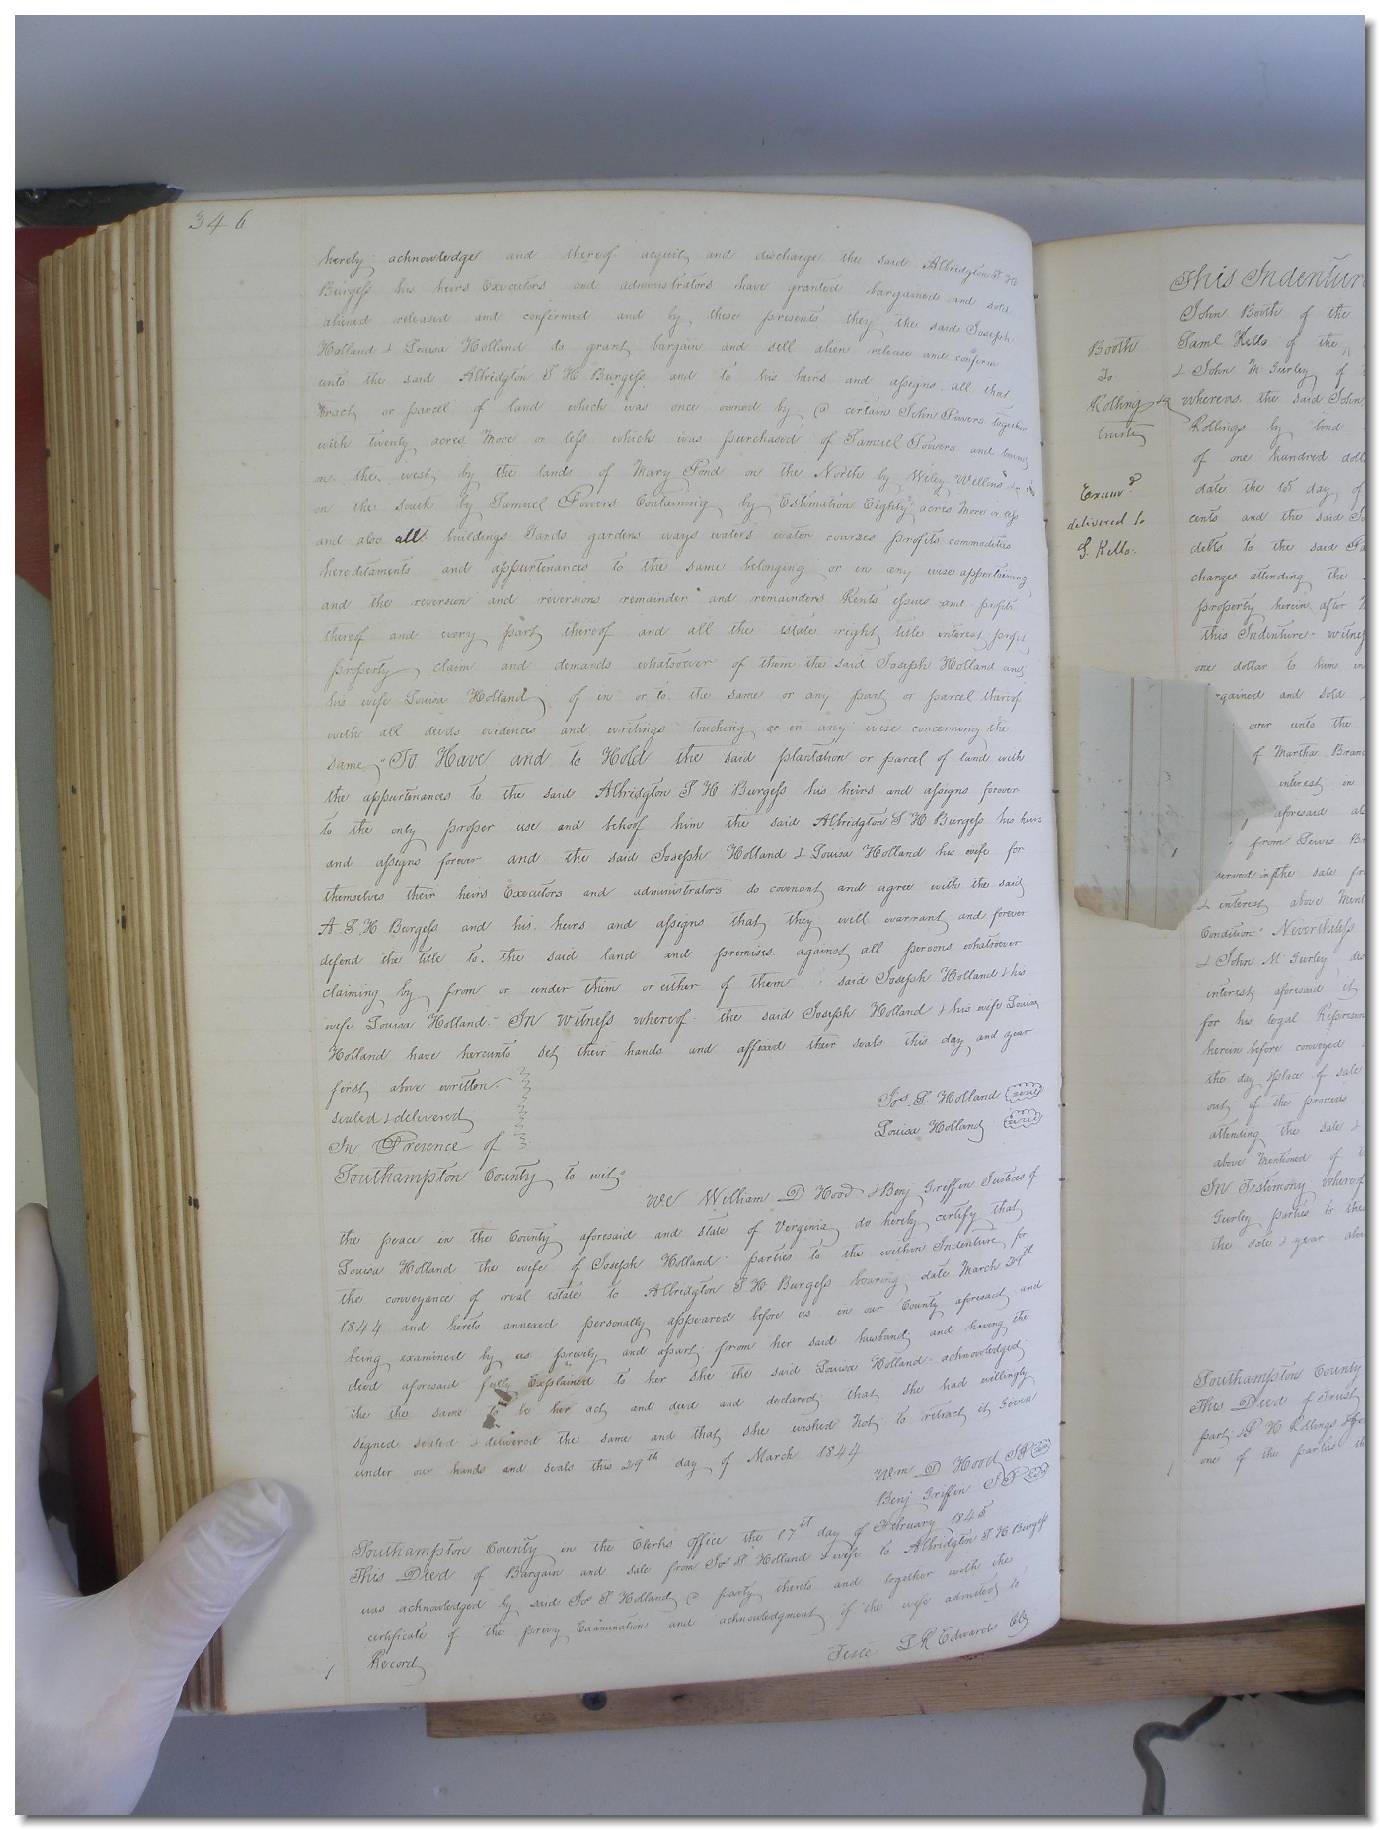 346
hereby acknowledge and thereof acquit and discharge the said Albridgton S H
Burgess his heirs Executors and administrators have granted bargained and sold
aliened released and confirmed and by these presents they the said Joseph
Holland & Louisa Holland do grant bargain and sell alien release and confirm
unto the said Albridgton S H Burgess and to his heirs and assigns all that
tract or parcel of land which was once owned by a certain John Powers together
with twenty acres more or less which was purchased of Samuel Powers and bound
on the west by the lands of Mary Pond on the North by Wiley
on the South by Samuel Powers Containing by Estimation Eighty acres more or less
and also all buildings Yards gardens ways waters water courses profits commodities
hereditaments and appurtenances to the same belonging or in any wise appertaining
and the reversion and reversions remainder and remainders Rents issues and profits
thereof and every part thereof and all the estate right title interest profit
property claim and demands whatsoever of them the said Joseph Holland and
his wife Louisa Holland of in or to the same or any part or parcel thereof
with all deeds evidences and writings touching or in any wise concerning the
same "To Have and to Hold the said plantation or parcel of land with
the appurtenances to the said Albridgton S H Burgess his heirs and assigns forever
to the only proper use and behoof him the said Albridgton S H Burgess his heirs
and assigns forever and the said Joseph Holland & Louisa Holland his wife for
themselves their heirs Executors and administrators do covenant and agree with the said
A S H Burgess and his heirs and assigns that they will warrant and forever
defend the title to the said land and premises against all persons whatsoever
claiming by from or under them or either of them said Joseph Holland & his
wife Louisa Holland - In Witness whereof the said Joseph Holland & his wife Louisa
Holland have hereunto set their hands and affixed their seals this day and year
first above written
sealed & delivered
In Presence of
Jos. S. Holland seal
Louisa Holland seal
Southampton County to wit"
We William D Hood & Benj Griffin Justices of
the peace in the County aforesaid and state of Virginia do hereby certify that
Louisa Holland the wife of Joseph Holland parties to the within Indenture for
the conveyance of real estate to Albridgton S H Burgess bearing date March 29th
1844 and hereto annexed personally appeared before us in our County aforesaid and
being examined by us privily and apart from her said husband and having the
deed aforesaid fully Explained to her She the said Louisa Holland acknowledged
the the same to be her act and deed and declared that she had willingly
signed sealed & delivered the same and that she wished not to retract it Given
under our hands and seals this 29th day of March 1844
Wm D Hood JP seal
Benj Griffin JP seal
Southampton County in the Clerks Office the 17th day of February 1845
This Deed of Bargain and sale from Jos S Holland & wife to Albridgton S H Burgess
was acknowledged by said Jos S Holland a party thereto and together with the
certificate of the privey Examination and acknowledgment of the wife admitted to
Record
Teste L R Edwards Clk
Booth
To
Rollings &a
trustee
Examd
delivered to
S. Kello.
This Indenture
John Booth of the
Saml Kello of the
& John M Gurley of
whereas the said John
Rollings by bond
of one hundred doll
date the 15 day of
cents and the said
debts to the said
charges attending the
property herein after
this Indenture - witness
one dollar to him in
gained and sold
over unto the
of Martha Bran
interest in
aforesaid
from Lewis Br
the sale
& interest above ment
Condition Nevertheless
& John M Gurley
interest aforesaid it
for his legal Represen
herein before conveyed
the day & place of sale
out of the proceeds
attending the sale &
above mentioned of
In Testimony whereof
Gurley parties to the
the date & year above
Southampton County
This Deed of Trust
part & P H Rollings
one of the parties th